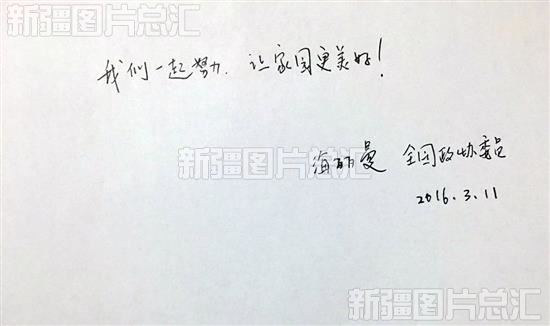 新疆图片总汇
我们一起努力，让家园更美好！
新疆图片总汇
海丽曼 全国政协委员
2016.3.11
新疆图片总汇